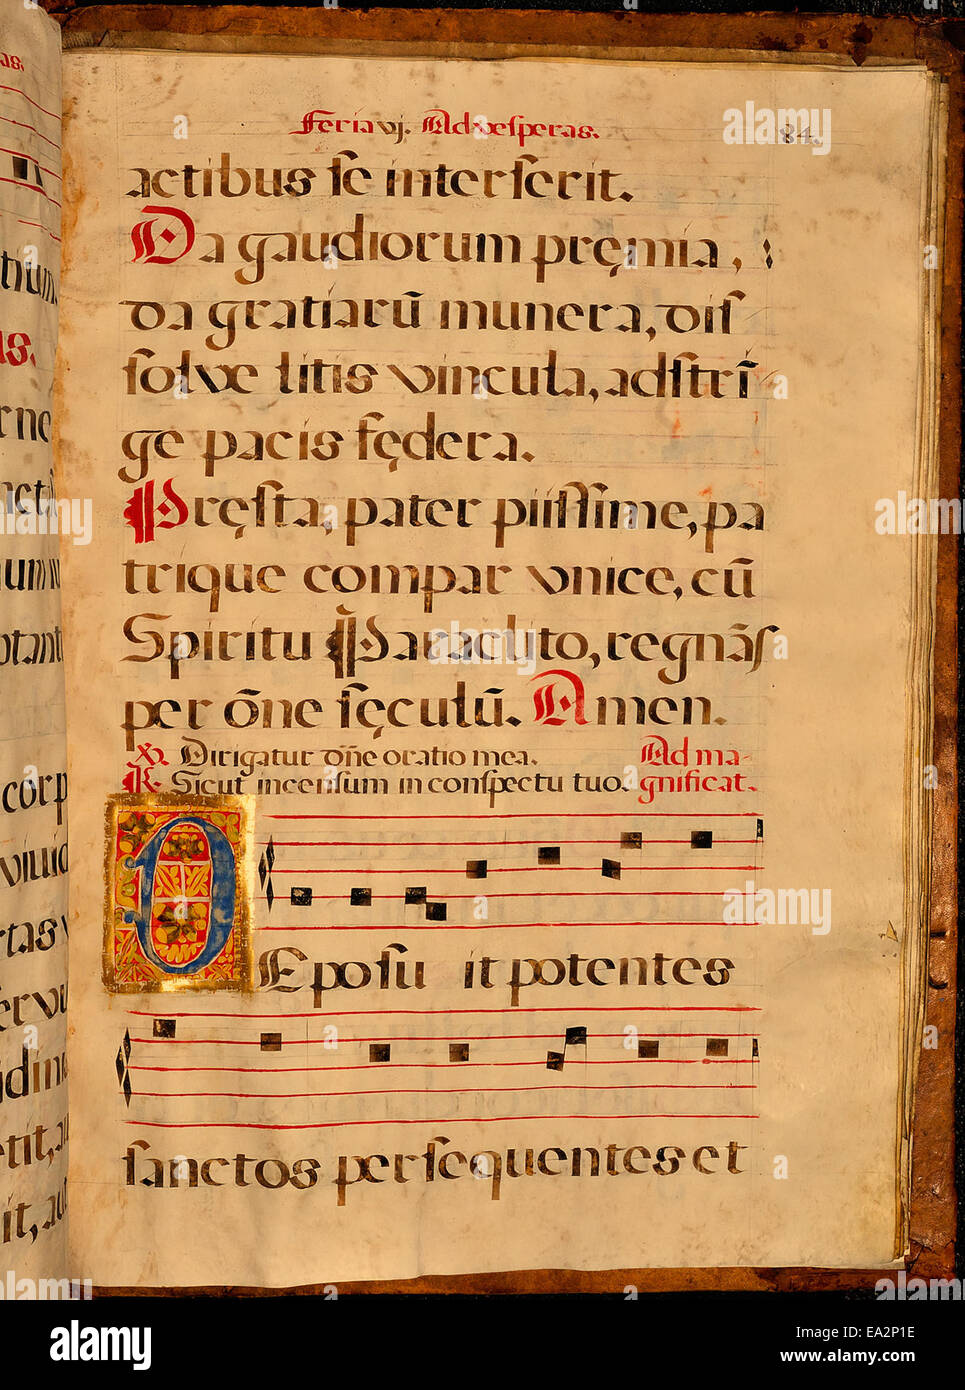 Feria vj. Ad vesperas. 84.
actibus ſe interſerit.
Da gaudiorum pręmia,
da gratiarū munera, diſ
ſolve litis vincula, adſtrī
ge pacis fędera.
Pręſta, pater piiſſime, pa
trique compar vnice, cū
Spiritu Paraclito, regnās
per ōne ſęculū. Amen.
℣. Dirigatur dn̄e oratio mea. Ad ma-
℟. Sicut incenſum in conſpectu tuo. gnificat.
DEpoſu it potentes
ſanctos perſequentes et
as.
us.
corp
alamy
alamy
Image ID: EA2P1E
www.alamy.com